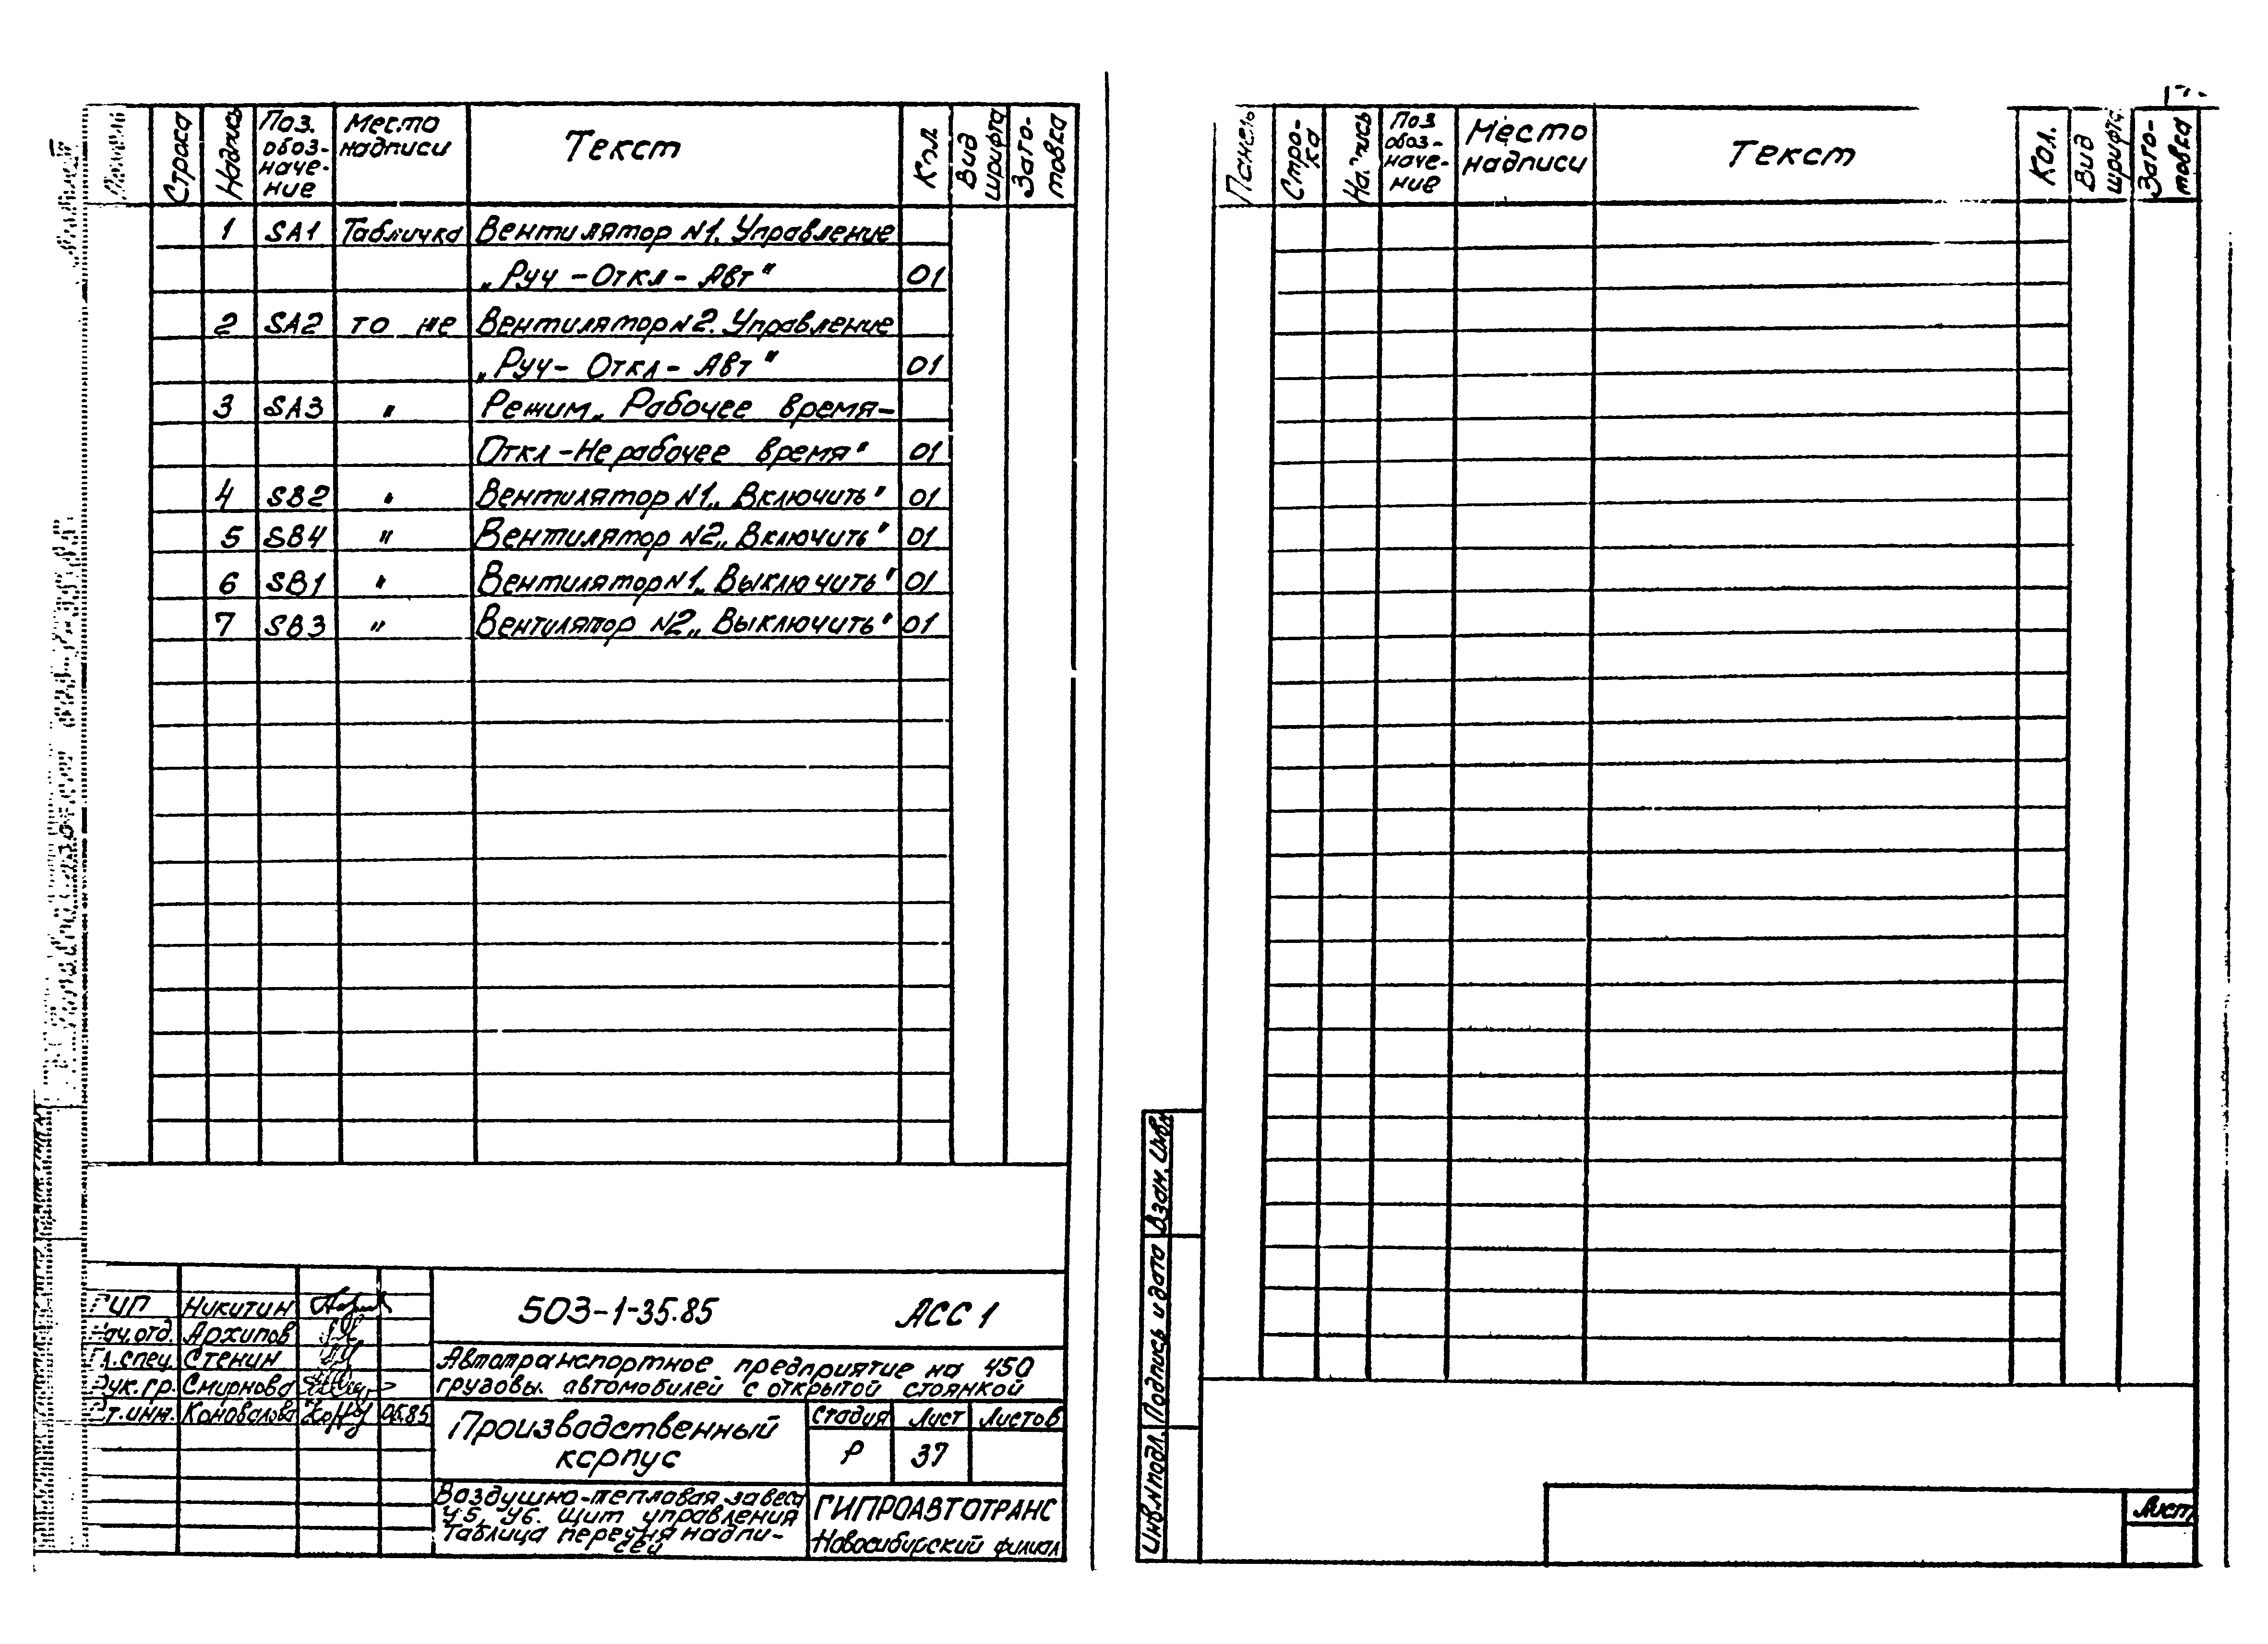 Строка Надпись Поз. обозначение Место надписи Текст Кол. Вид шрифта Заготовка
1 SA1 Табличка Вентилятор N1. Управление
„Руч - Откл - Авт" 01
2 SA2 то же Вентилятор N2. Управление
„Руч - Откл - Авт" 01
3 SA3 " Режим „Рабочее время-
Откл - Нерабочее время" 01
4 SB2 " Вентилятор N1 „Включить" 01
5 SB4 " Вентилятор N2 „Включить" 01
6 SB1 " Вентилятор N1 „Выключить" 01
7 SB3 " Вентилятор N2 „Выключить" 01
ГИП Никитин
Нач.отд. Архипов
Гл.спец. Стенин
Рук.гр. Смирнова
Ст.инж. Коновалова 05.85
503-1-35.85 АСС 1
Автотранспортное предприятие на 450
грузовы. автомобилей с открытой стоянкой
Производственный
корпус
Стадия Лист Листов
Р 37
Воздушно-тепловая завеса
У5, У6. Щит управления
Таблица перечня надпи-
сей
ГИПРОАВТОТРАНС
Новосибирский филиал
Панель Стро-
ка Надпись Поз
обоз-
наче-
ние Место
надписи Текст Кол. Вид
шрифта Заго-
товка
Инв.N подл. Подпись и дата Взам. инв.N
Лист